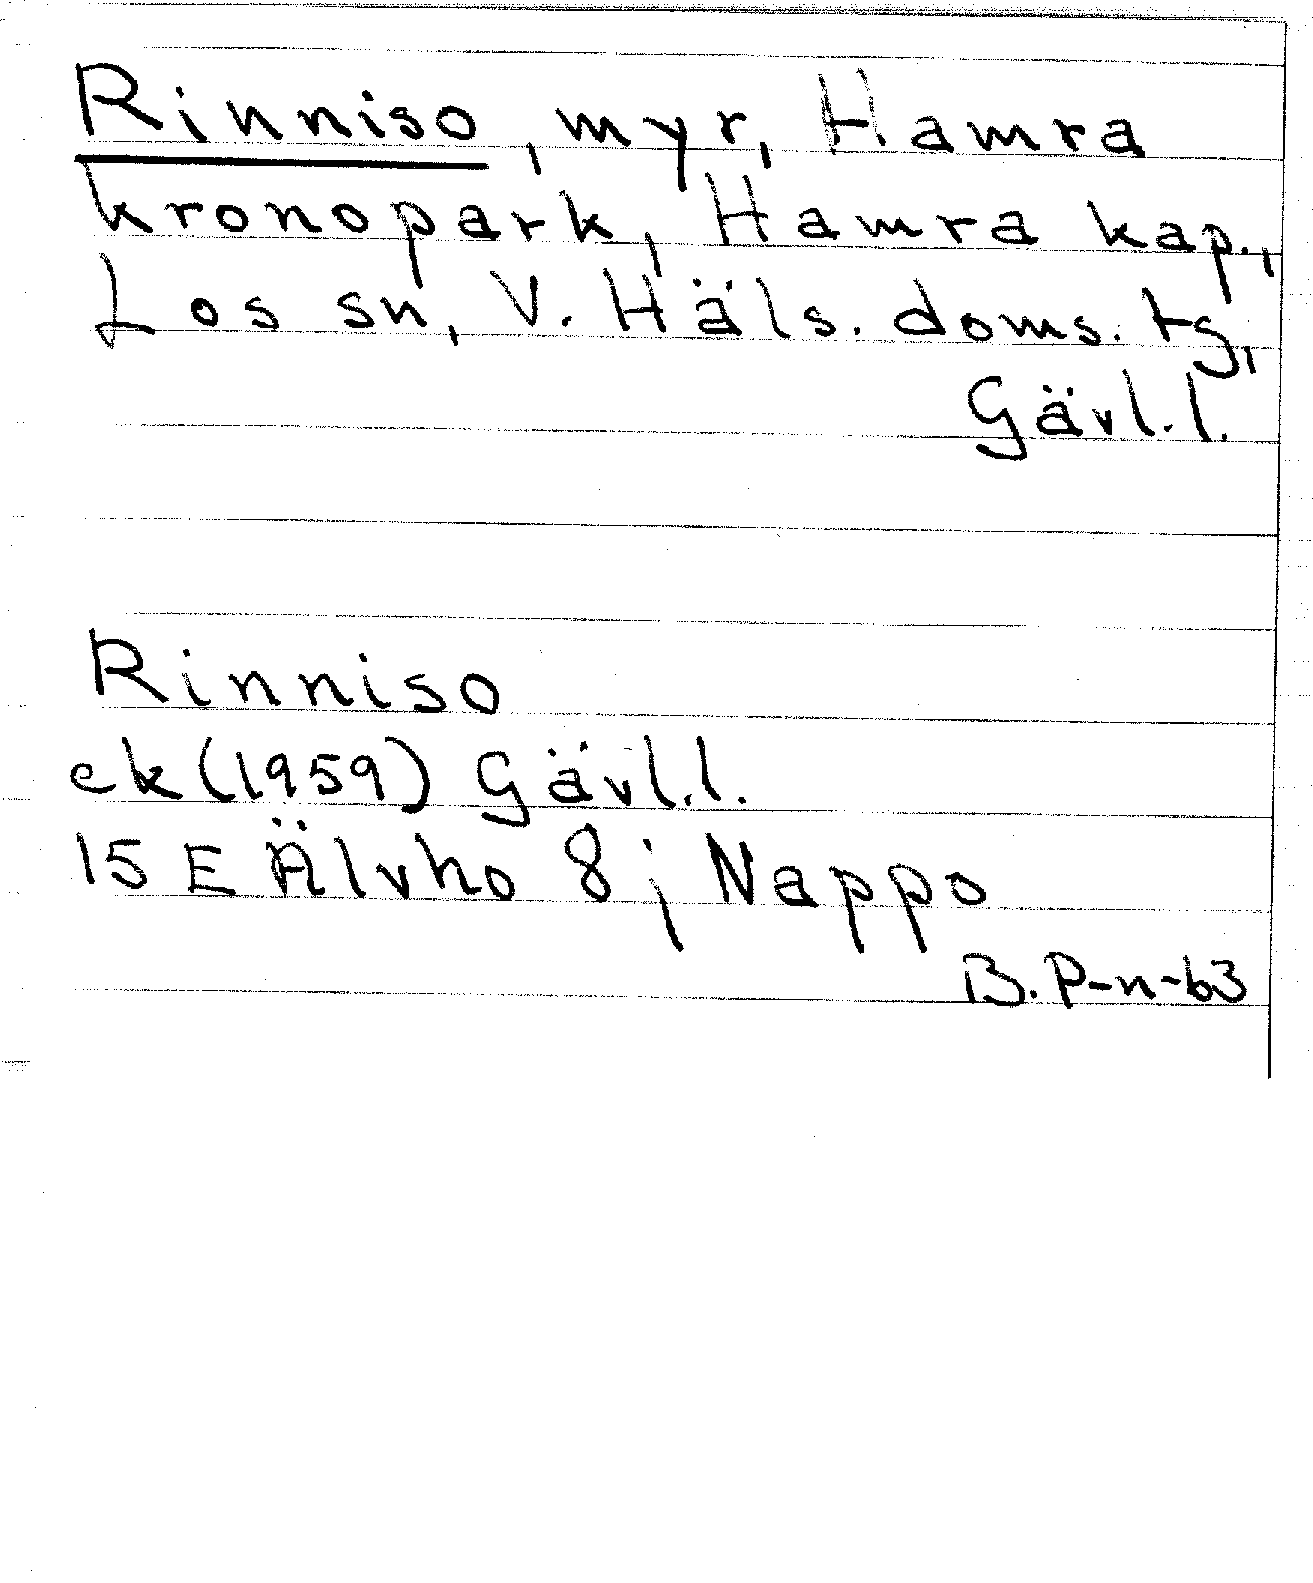 Rinniso, myr, Hamra
kronopark, Hamra kap.,
Los sn, V. Häls. doms. tg,
Gävl.l.
Rinniso
ek (1959) Gävl.l.
15 E Älvho 8 ; Nappo
B. P-n-63